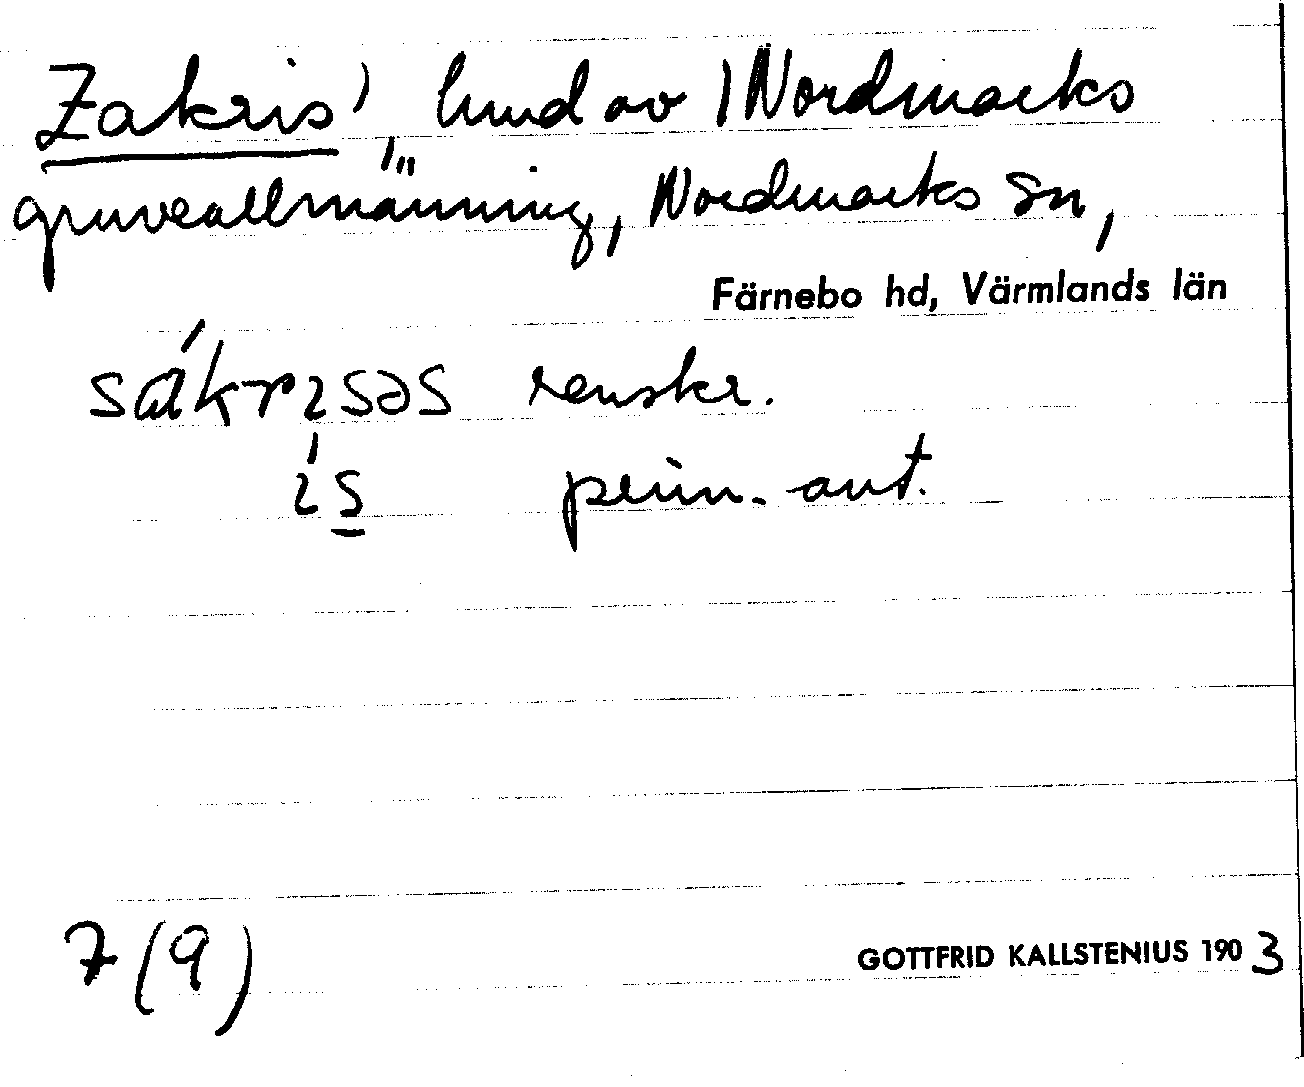 Zakris', hmd av 1 Nordmarks
gruveallmänning, Nordmarks sn,
Färnebo hd, Värmlands län
sákrısəs renskr.
ís prim. ant.
7 (9)
GOTTFRID KALLSTENIUS 1903